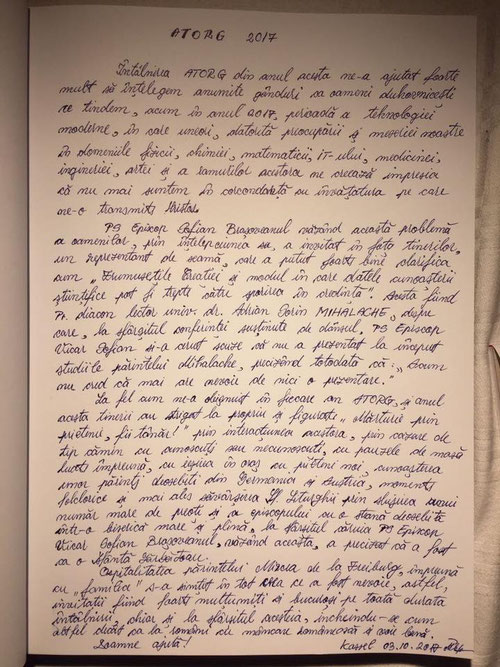 ATORG 2017
Întâlnirea ATORG din anul acesta ne-a ajutat foarte
mult să înțelegem anumite gânduri ca oameni duhovnicești
ce tindem, acum în anul 2017, perioadă a tehnologiei
moderne, în care uneori, datorită preocupării și meseriei noastre
în domeniile fizicii, chimiei, matematicii, IT-ului, medicinei,
ingineriei, artei și a ramurilor acestora ne crează impresia
că nu mai suntem în concordanță cu învățătura pe care
ne-o transmite Hristos.
PS Episcop Sofian Brașoveanul văzând această problemă
a oamenilor, prin înțelepciunea sa, a invitat în fața tinerilor,
un reprezentant de seamă, care a putut foarte bine clarifica
cum "Frumusețile Creației și modul în care datele cunoașterii
științifice pot fi trepte către sporirea în credință". Acesta fiind
Pr. diacon lector univ. dr. Adrian Sorin MIHALACHE, despre
care, la sfârșitul conferinței susținute de dânsul, PS Episcop
Vicar Sofian și-a cerut scuze că nu a prezentat la început
studiile părintelui Mihalache, precizând totodată că: "Acum
nu cred că mai are nevoie de nici o prezentare."
La fel cum ne-a obișnuit în fiecare an ATORG, și anul
acesta tinerii au strigat la propriu și figurativ "Mărturie prin
prieteni, fii tânăr!" prin interacțiunea acestora, prin cazare de
tip cămin cu cunoscuți sau necunoscuți, cu pauzele de masă
luate împreună, cu ieșirea în oraș cu prieteni noi, cunoașterea
unor părinți deosebiți din Germania și Austria, momente
folclorice și mai ales săvârșirea Sf. Liturghii prin slujirea unui
număr mare de preoți și a episcopului cu o strană deosebită
într-o biserică mare și plină, la sfârșitul căruia PS Episcop
Vicar Sofian Brașoveanul, văzând aceasta, a precizat că a fost
ca o Sfântă Sărbătoare.
Ospitalitatea părintelui Mircea de la Freiburg, împreună
cu "familia" s-a simțit în tot ceea ce a fost nevoie, astfel,
invitații fiind foarte mulțumiți și bucuroși pe toată durata
întâlnirii, chiar și la sfârșitul acesteia, încheindu-se cum
altfel decât ca la români de mâncare românească și voie bună.
Doamne ajută! Kassel 03.10.2017